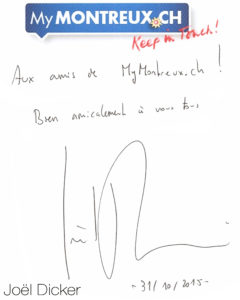 My MONTREUX.CH
Keep in Touch!
Aux amis de MyMontreux.ch !
Bien amicalement à vous tous
Joël Dicker
- 31/10/2015 -